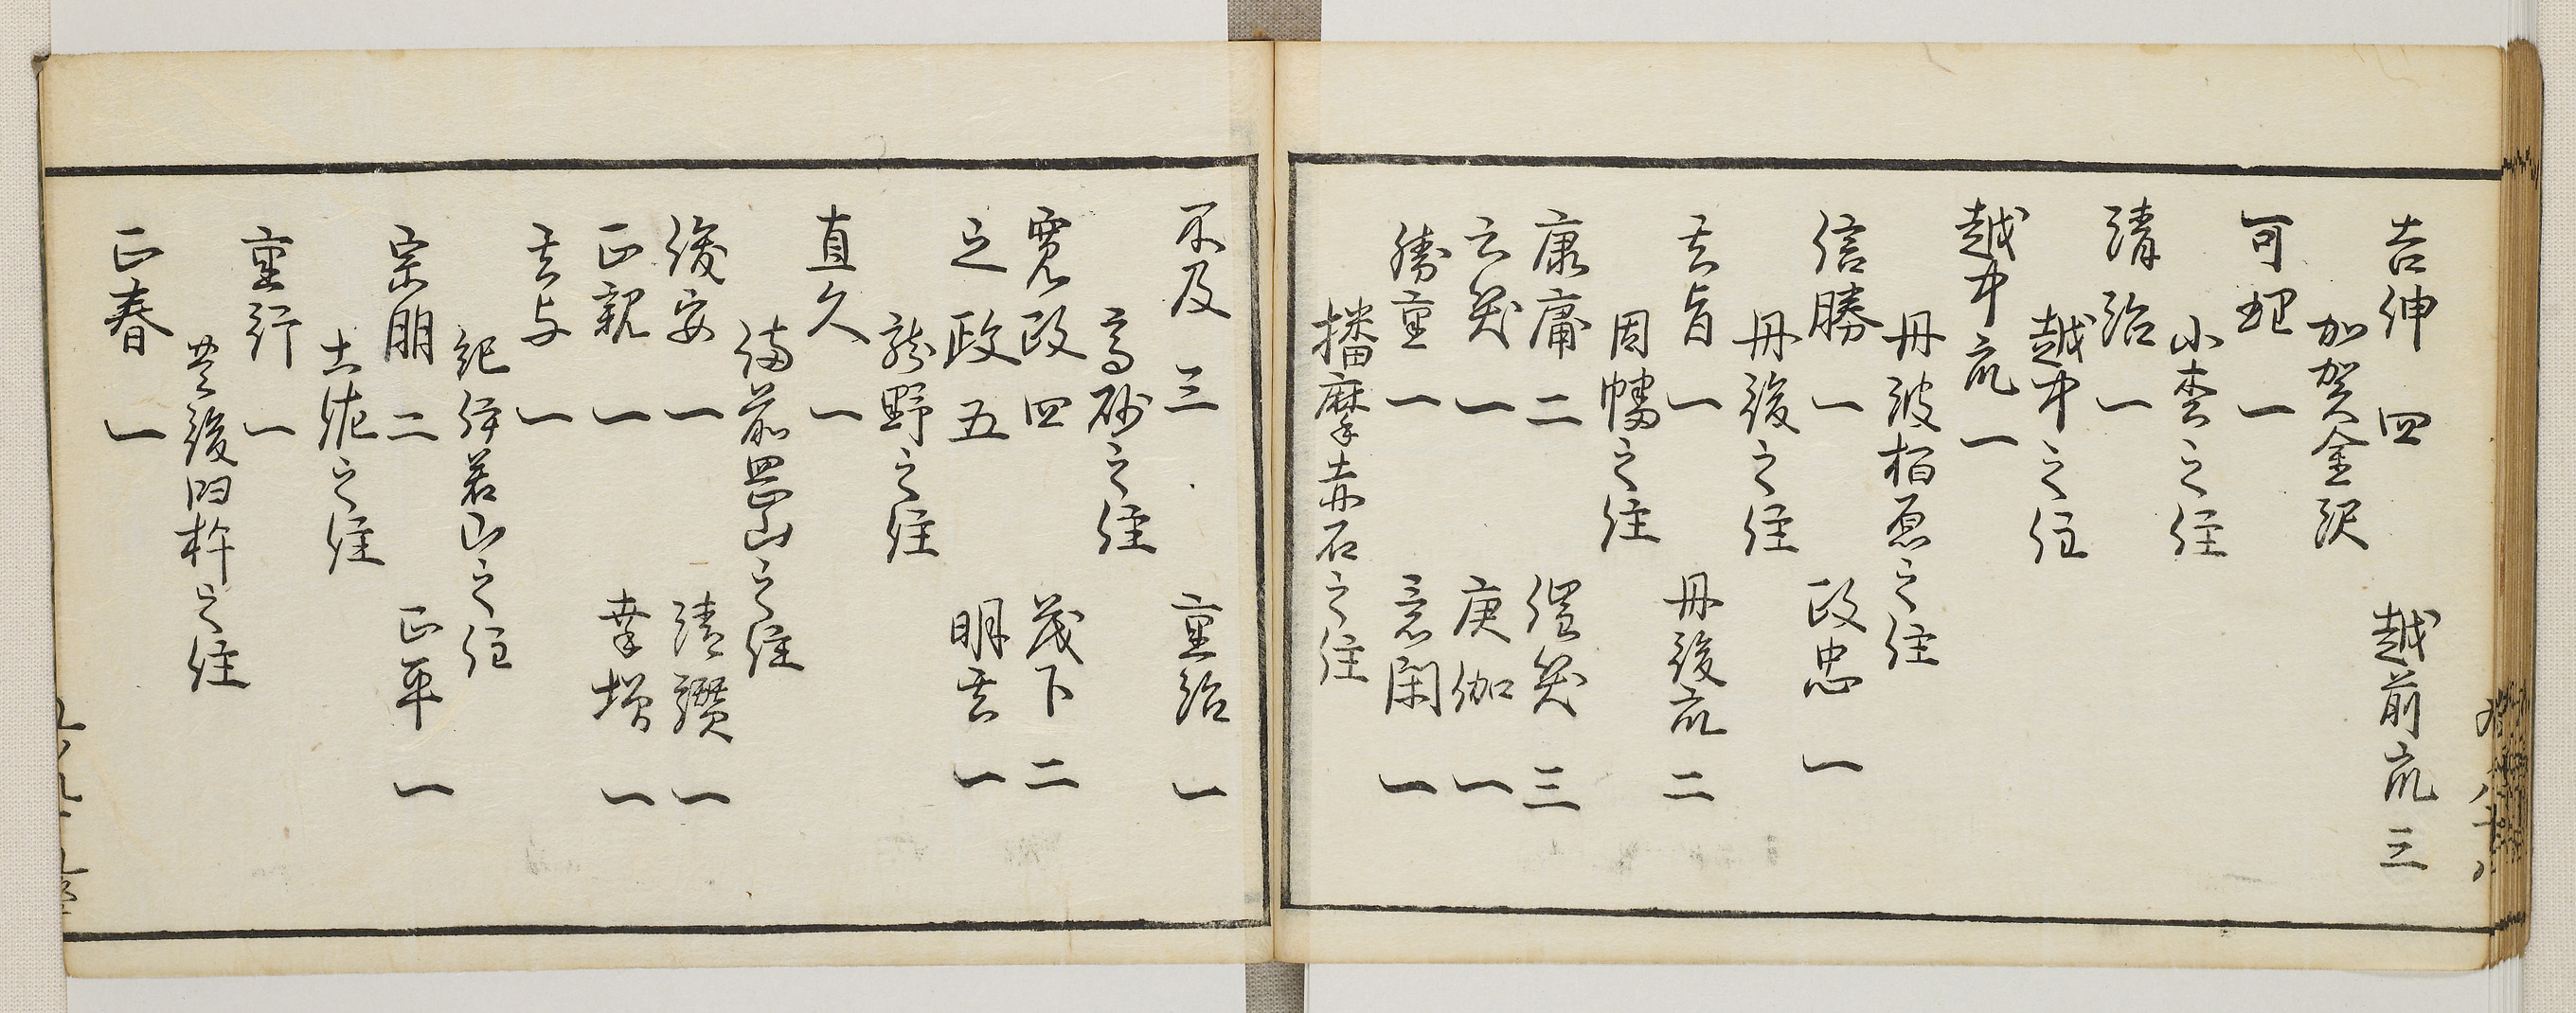 吉伸 四 越前衆 三
加賀金沢
可 一
小松之住
清治 一
越中之住
越中衆 一
丹波柏原之住
信勝 一 政忠 一
丹後之住
吉旨 一 丹後衆 二
因幡之住
康庸 二 三
一 庚伽 一
勝重 一 意閑 一
播摩赤石之住
不及 三 重治 一
高砂之住
寛政 四 茂下 二
之政 五 明 一
龍野之住
直久 一
備前岡山之住
後安 一 清纘 一
正親 一 幸増 一
与 一
紀伊若山之住
宗朋 二 正平 一
土佐之住
重行 一
豊後臼杵之住
正春 一